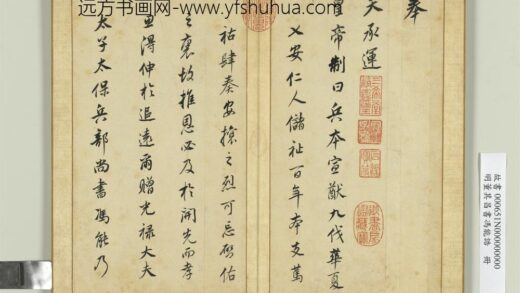 远方书画网-www.yfshuhua.com
奉
天承運
皇帝制曰兵本宣猷九伐華夏
乂安仁人儲祉百年本支篤
祜肆奏安攘之烈可忘啓佑
之褒故推恩必及於開先而孝
思得伸於追遠爾贈光祿大夫
太子太保兵部尚書馮能乃
故書 000651N000000000
明董其昌書馮能誥 冊